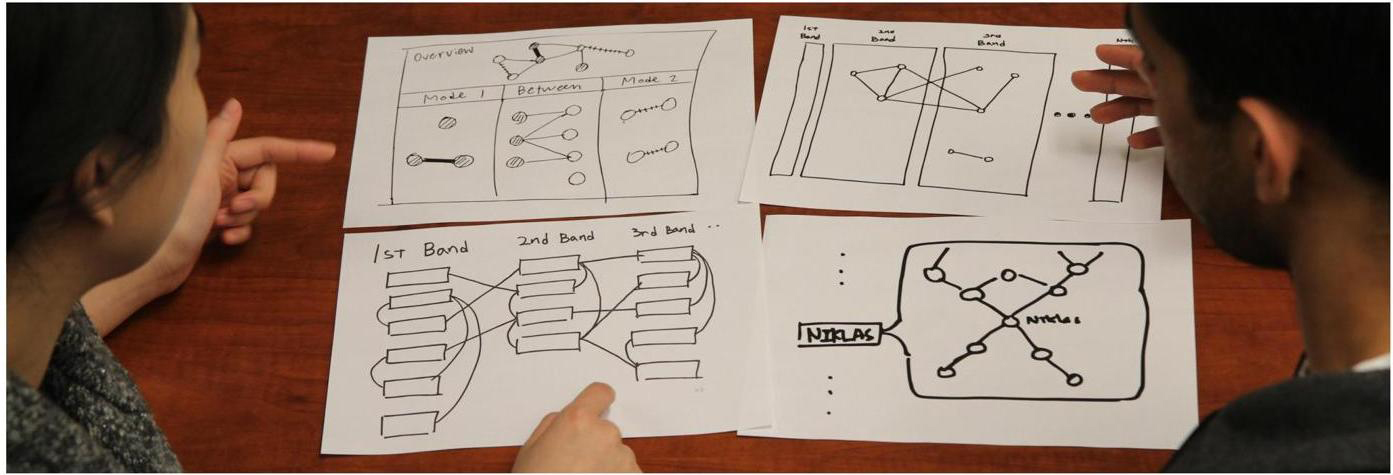 Overview
Mode 1 Between Mode 2
1st Band 2nd Band 3rd Band
1st Band 2nd Band 3rd Band ..
NIKLAS
Niklas